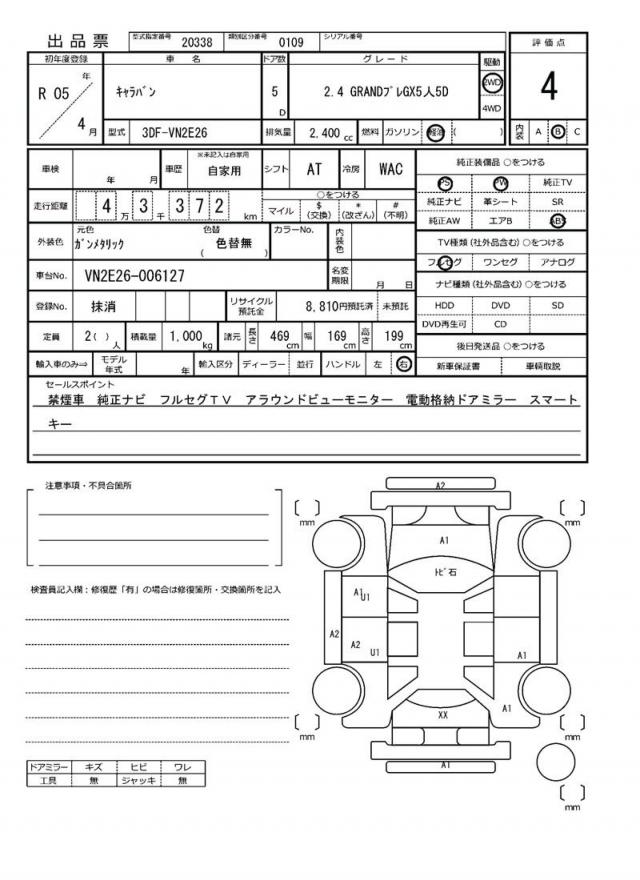 出品票 型式指定番号 20338 類別区分番号 0109 シリアル番号
評価点
4
内装 A B C
初年度登録 車名 ドア数 グレード 駆動
R 05 年 4 月
ｷｬﾗﾊﾞﾝ 5 D 2.4 GRANDﾌﾟﾚGX5人5D 2WD
4WD
型式 3DF-VN2E26 排気量 2,400 cc 燃料 ガソリン 軽油 ( )
車検 年 月 車歴 ※未記入は自家用 自家用 シフト AT 冷房 WAC
走行距離 4 万 3 千 3 7 2 km ○をつける
マイル $ (交換) * (改ざん) # (不明)
外装色 元色 ｶﾞﾝﾒﾀﾘｯｸ 色替 ( 色替無 ) カラーNo. 内装色
車台No. VN2E26-006127 名変期限 月 日
登録No. 抹消 リサイクル預託金 8,810円預託済 未預託
定員 2( ) 人 積載量 1,000 kg 諸元 長さ 469 cm 幅 169 cm 高さ 199 cm
輸入車のみ⇒ モデル年式 年 輸入区分 ディーラー 並行 ハンドル 左 右
純正装備品 ○をつける
PS PW 純正TV
純正ナビ 革シート SR
純正AW エアB ABS
TV種類(社外品含む) ○をつける
フルセグ ワンセグ アナログ
ナビ種類(社外品含む) ○をつける
HDD DVD SD
DVD再生可 CD
後日発送品 ○をつける
新車保証書 車輌取説
セールスポイント
禁煙車 純正ナビ フルセグＴＶ アラウンドビューモニター 電動格納ドアミラー スマート
キー
注意事項・不具合箇所
検査員記入欄：修復歴「有」の場合は修復箇所・交換箇所を記入
ドアミラー キズ ヒビ ワレ
工具 無 ジャッキ 無
A2
[ ] mm [ ] mm
A1
ﾄﾋﾞ石
A1 U1
A2 A2 U1 A1
A1
XX
[ ] mm [ ] mm
A1
[ ] mm